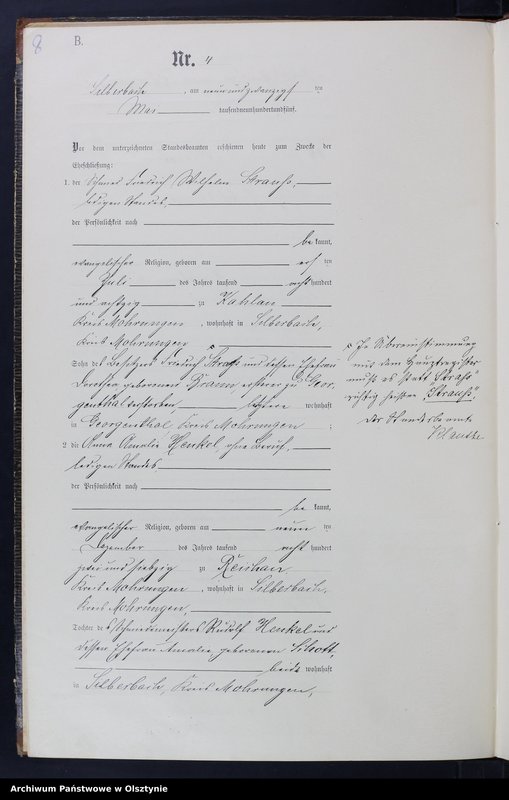 8
B.
Nr. 4
Silberbach, am neunundzwanzigsten
Mai tausendneunhundertundfünf.
Vor dem unterzeichneten Standesbeamten erschienen heute zum Zwecke der
Eheschließung:
1. der Schmied Friedrich Wilhelm Strauss,
ledigen Standes,
der Persönlichkeit nach
be kannt,
evangelischer Religion, geboren am ten
Juli des Jahres tausend acht hundert
und achtzig zu Kahlau
Kreis Mohrungen, wohnhaft in Silberbach,
Kreis Mohrungen
Sohn des Besitzers Friedrich Straß und dessen Ehefrau
Dorothea, geborenen Braun, ersterer zu Geor-
genthal verstorben, letztere wohnhaft
in Georgenthal Kreis Mohrungen ;
2. die Anna Amalie Henkel, ohne Beruf,
ledigen Standes,
der Persönlichkeit nach
be kannt,
evangelischer Religion, geboren am neun ten
Dezember des Jahres tausend acht hundert
zwei und siebzig zu Reichau
Kreis Mohrungen, wohnhaft in Silberbach,
Kreis Mohrungen,
Tochter des Schmiedemeisters Rudolf Henkel und
dessen Ehefrau Amalie, geborenen Schott,
beide wohnhaft
in Silberbach, Kreis Mohrungen,
In Übereinstimmung
mit dem Hauptregister
muß es statt "Straß"
richtig heißen "Strauss".
Der Standesbeamte
Archiwum Państwowe w Olsztynie